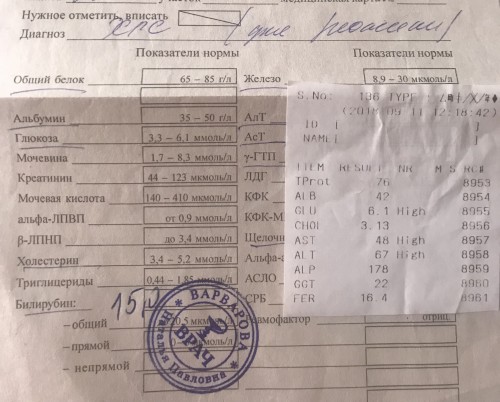 Нужное отметить, вписать
Диагноз
Показатели нормы
Показатели нормы
Общий белок 65 – 85 г/л
Железо 8,9 – 30 мкмоль/л
Альбумин 35 – 50 г/л
АлТ
Глюкоза 3,3 – 6,1 ммоль/л
АсТ
Мочевина 1,7 – 8,3 ммоль/л
γ-ГТП
Креатинин 44 – 123 мкмоль/л
ЛДГ
Мочевая кислота 140 – 410 мкмоль/л
КФК
альфа-ЛПВП от 0,9 ммоль/л
КФК-М
β-ЛПНП до 3,4 ммоль/л
Холестерин 3,4 – 5,2 ммоль/л
Триглицериды 0,44 – 1,85 ммоль/л
АСЛО
Билирубин:
СРБ
– общий
– прямой
– непрямой
S.No: 136 TYPE
12:18:42)
ID [
NAME[
ITEM RESULT NR M S RG#
TProt 76 8953
ALB 42 8954
GLU 6.1 High 8955
CHOl 3.13 8956
AST 48 High 8957
ALT 67 High 8958
ALP 178 8959
GGT 22 8960
FER 16.4 8961
ВАРВАРОВА
Наталья Павловна
ВРАЧ